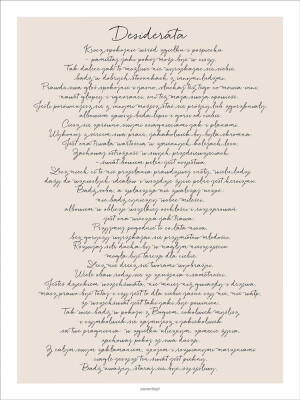 Desiderata
Krocz spokojnie wśród zgiełku i pośpiechu
- pamiętaj jaki pokój może być w ciszy.
Tak dalece jak to możliwe nie wyrzekając się siebie
bądź w dobrych stosunkach z innymi ludźmi.
Prawdę swą głoś spokojnie i jasno, słuchaj też tego co mówią inni,
nawet głupcy i ignoranci, oni też mają swoją opowieść.
Jeśli porównujesz się z innymi możesz stać się próżny lub zgorzkniały,
albowiem zawsze będą lepsi i gorsi od ciebie.
Ciesz się zarówno swymi osiągnięciami jak i planami.
Wykonuj z sercem swą pracę, jakakolwiek by była skromna.
Jest ona trwałą wartością w zmiennych kolejach losu.
Zachowaj ostrożność w swych przedsięwzięciach
- świat bowiem pełen jest oszustwa.
Lecz niech ci to nie przesłania prawdziwej cnoty, wielu ludzi
dąży do wzniosłych ideałów i wszędzie życie pełne jest heroizmu.
Bądź sobą, a zwłaszcza nie zwalczaj uczuć:
nie bądź cyniczny wobec miłości,
albowiem w obliczu wszelkiej oschłości i rozczarowań
jest ona wieczna jak trawa.
Przyjmuj pogodnie to co lata niosą,
bez goryczy wyrzekając się przymiotów młodości.
Rozwijaj siłę ducha by w nagłym nieszczęściu
mogła być tarczą dla ciebie.
Lecz nie dręcz się tworami wyobraźni.
Wiele obaw rodzi się ze znużenia i samotności.
Jesteś dzieckiem wszechświata, nie mniej niż gwiazdy i drzewa,
masz prawo być tutaj i czy jest to dla ciebie jasne czy nie, nie wątp,
że wszechświat jest taki jaki być powinien.
Tak więc bądź w pokoju z Bogiem, cokolwiek myślisz
i czymkolwiek się zajmujesz i jakiekolwiek
są twe pragnienia: w zgiełku ulicznym, zamęcie życia,
zachowaj pokój ze swą duszą.
Z całym swym zakłamaniem, znojem i rozwianymi marzeniami
ciągle jeszcze ten świat jest piękny.
Bądź uważny, staraj się być szczęśliwy.